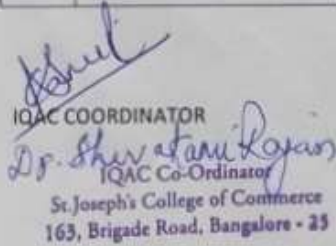 IQAC COORDINATOR
Dr. Shivakami Rajan
IQAC Co-Ordinator
St.Joseph's College of Commerce
163, Brigade Road, Bangalore - 25